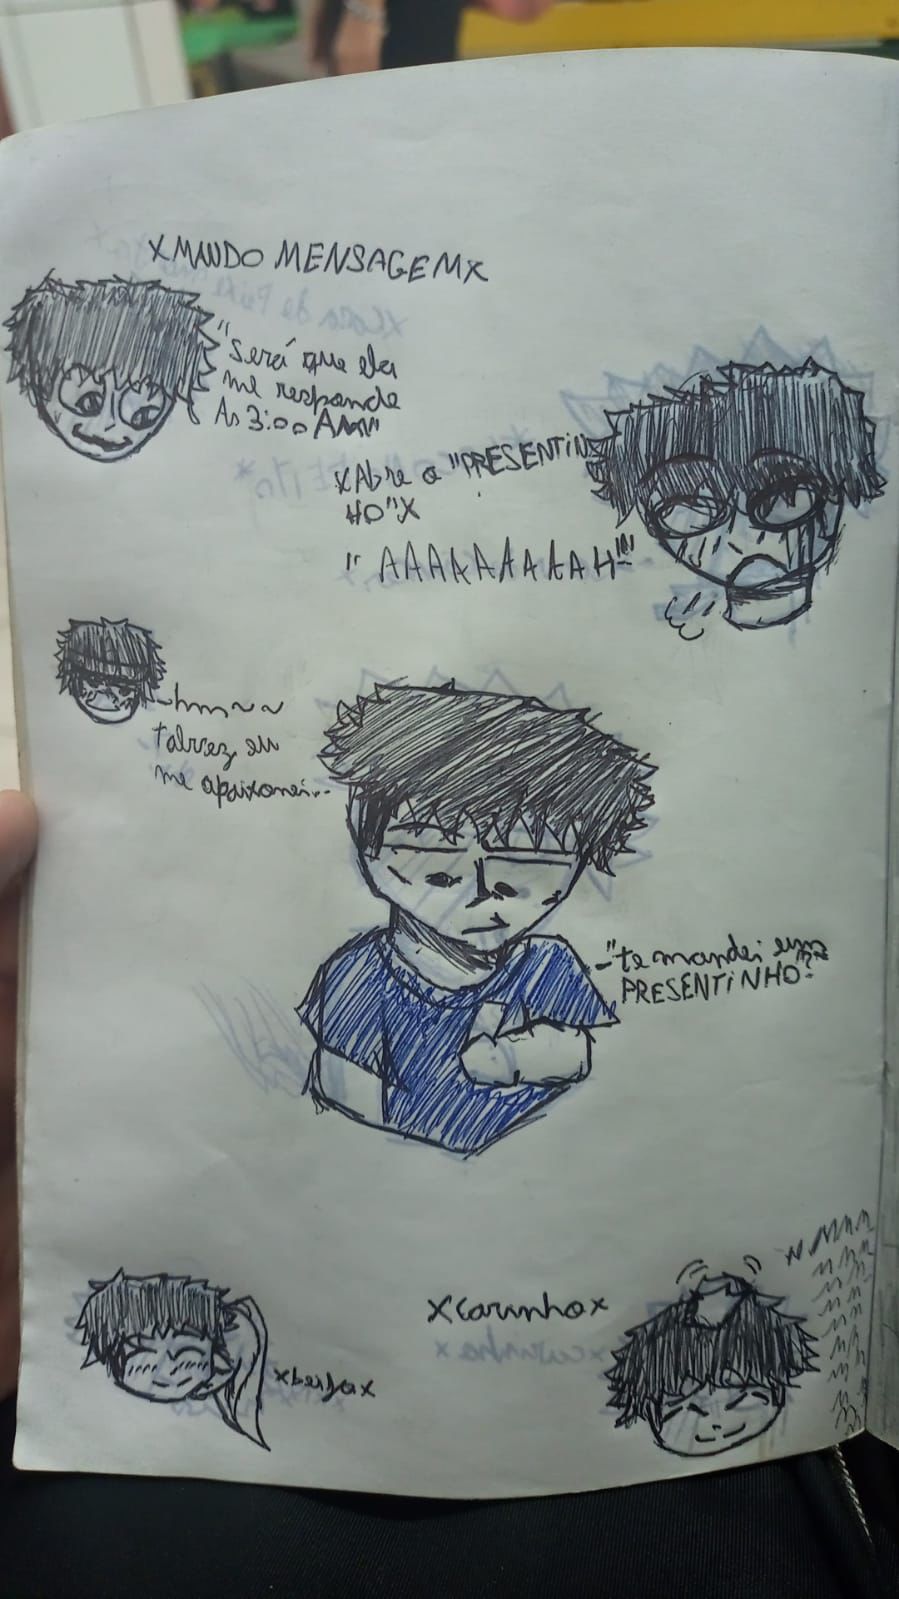 XMANDO MENSAGEMX
"Será que ela
me responde
As 3:00 AM"
XAbre o "PRESENTIN
HO"X
"AAAAAAAAAH!!!"
~hm~~
talvez eu
me apaixonei...
-"te mandei um
PRESENTINHO?
xcarinhox
xbeijax